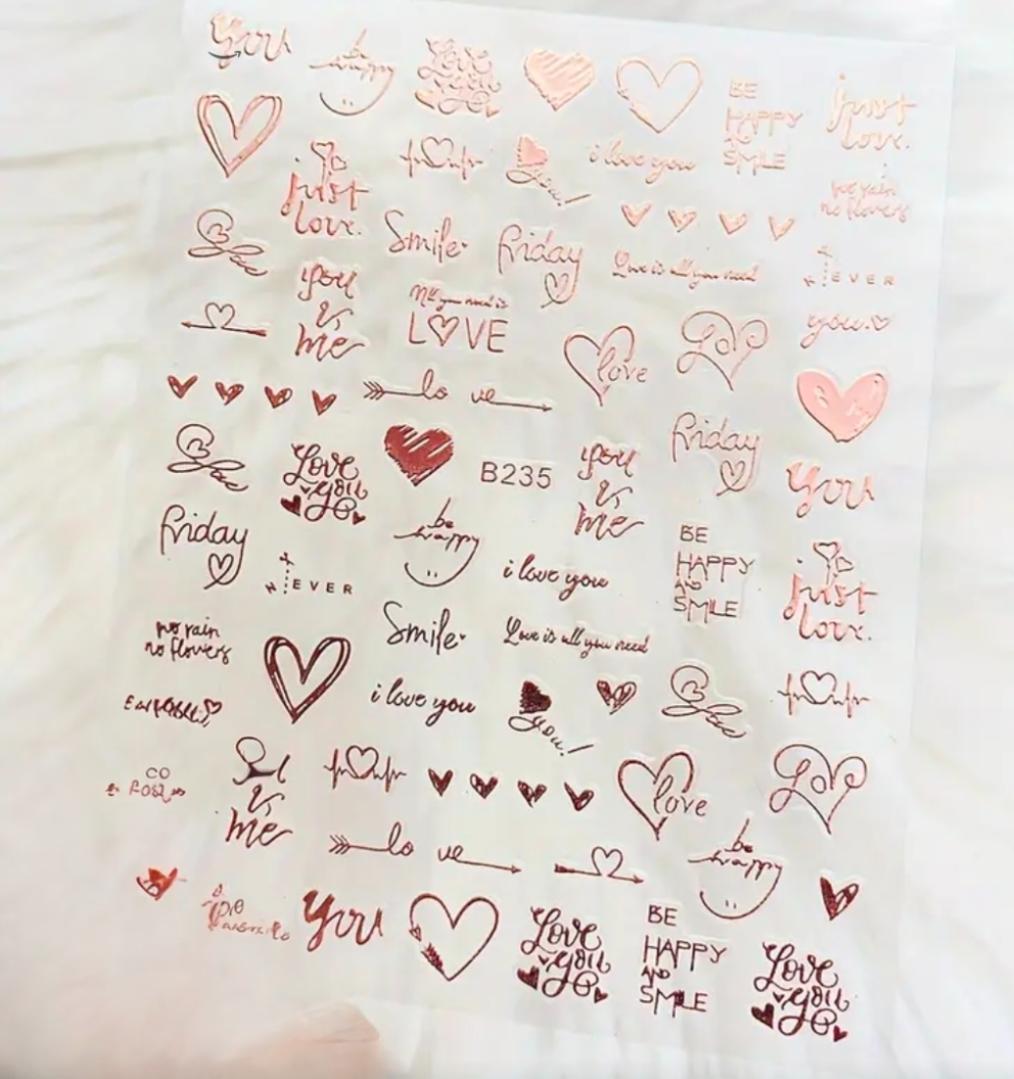 You
be
happy
Love
you
BE
HAPPY
AND
SMILE
just
love.
just
love.
you!
i love you
no rain
no flowers
Smile
friday
Love is all you need
NEVER
you
&
me
All you need is
LOVE
love
Love
you
lo ve
friday
Love
you
B235
you
&
me
You
friday
NEVER
be
happy
i love you
BE
HAPPY
AND
SMILE
just
love.
no rain
no flowers
Smile
Love is all you need
i love you
you!
&
me
love
Love
lo ve
be
happy
You
Love
you
BE
HAPPY
AND
SMILE
Love
you